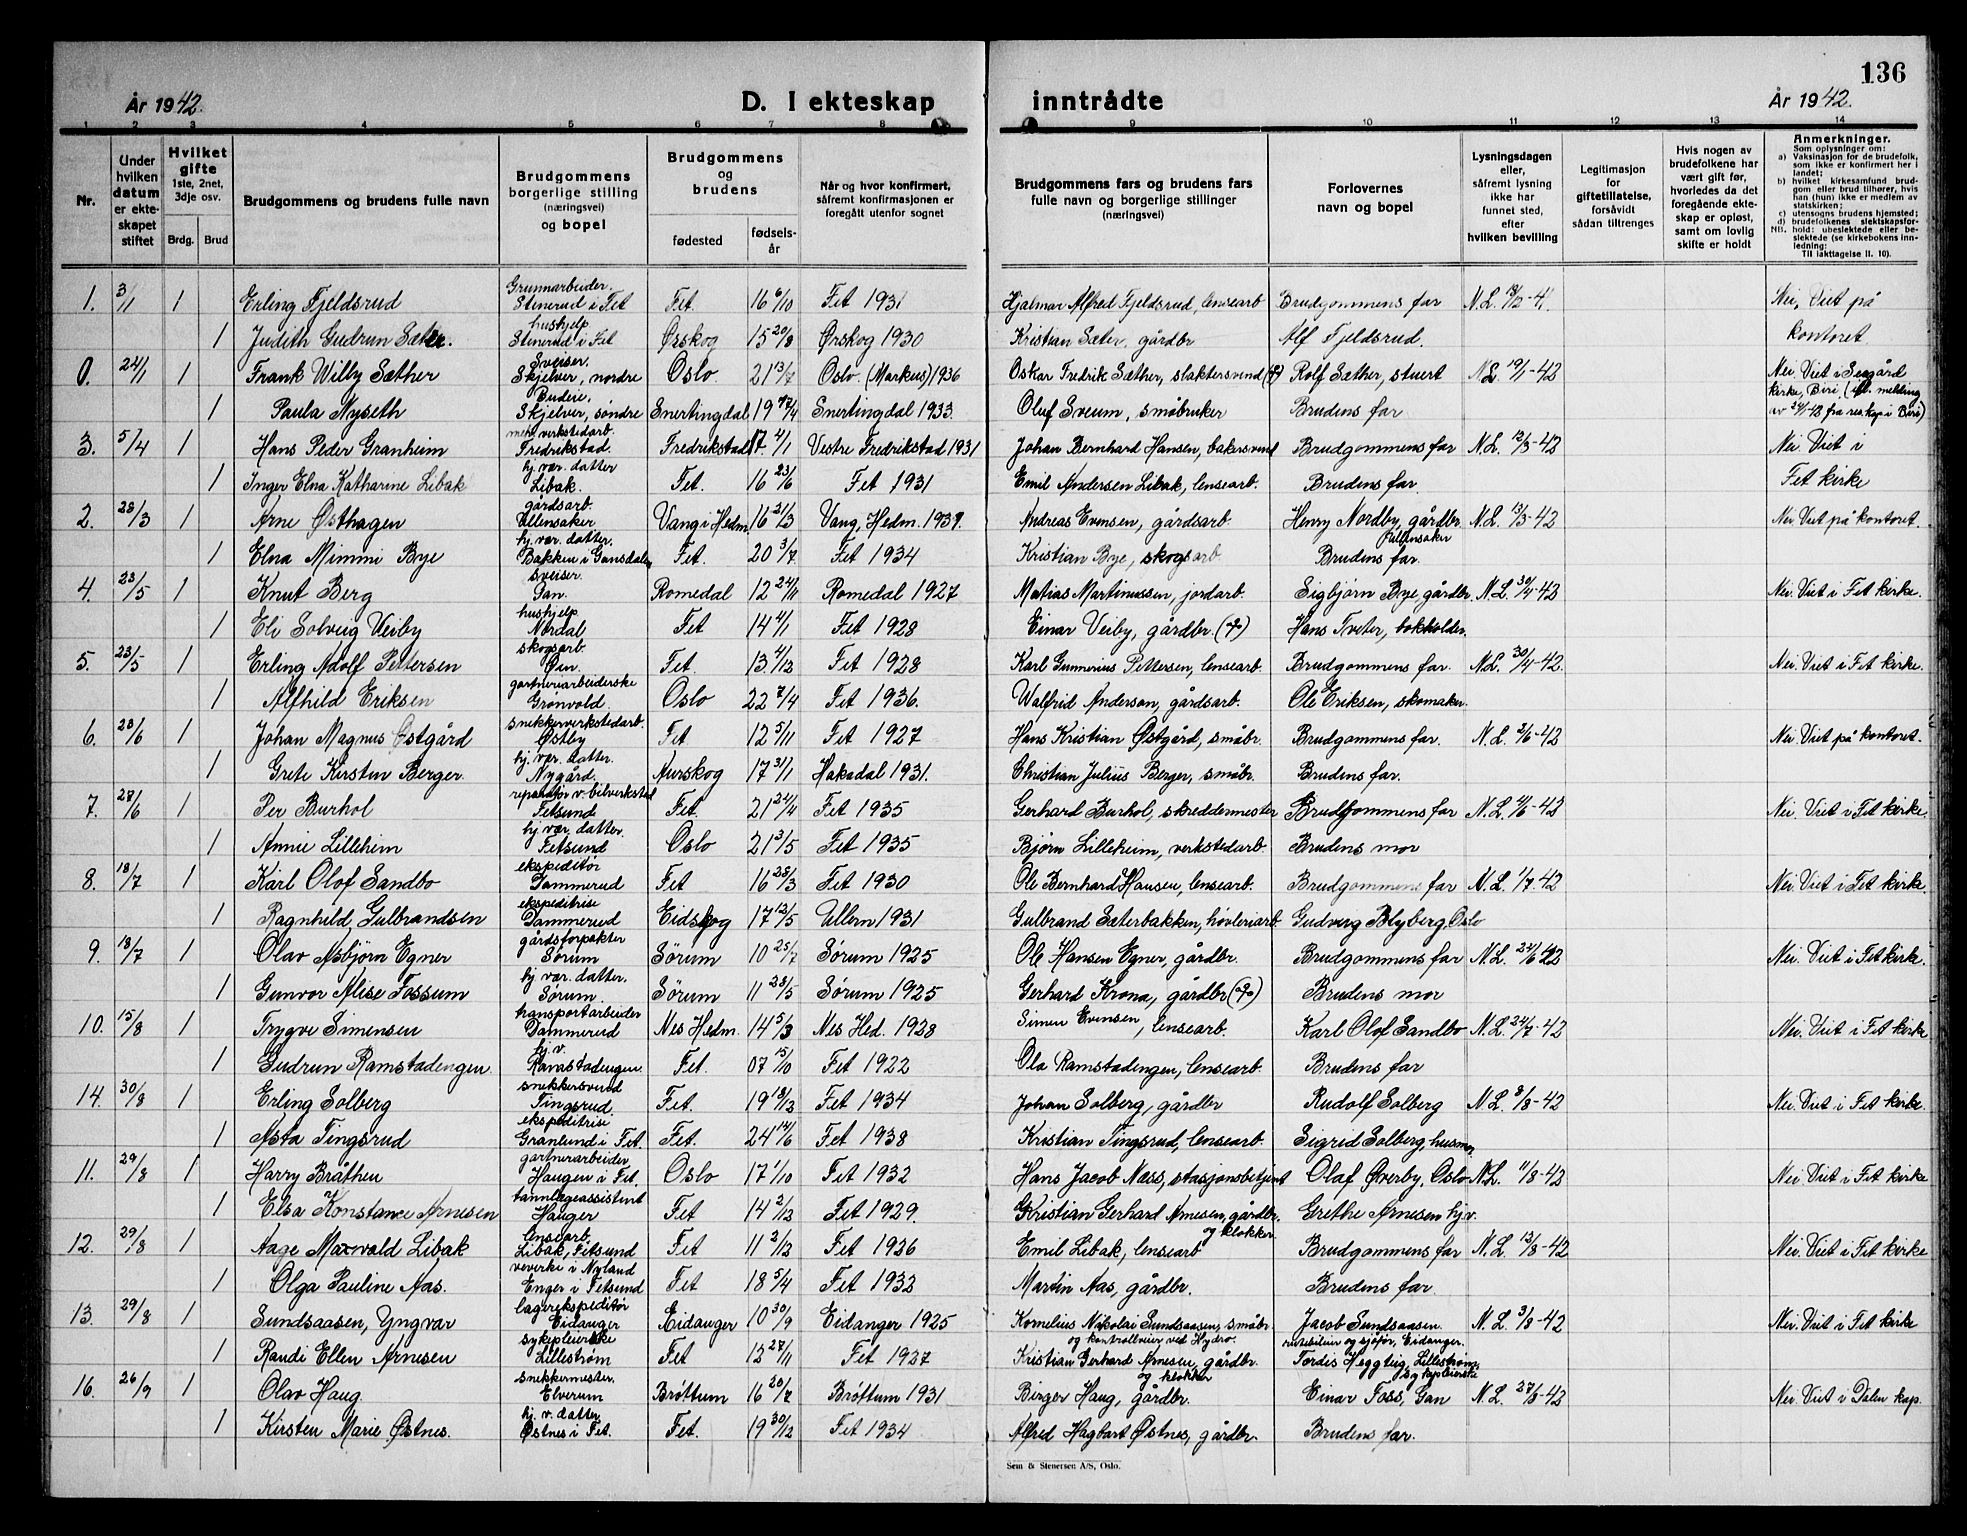 136
År 1942. D. I ekteskap inntrådte År 1942.
1 2 3 4 5 6 7 8 9 10 11 12 13 14
Nr. | Under hvilken datum er ekteskapet stiftet | Hvilket gifte 1ste, 2net, 3dje osv. Brdg. Brud | Brudgommens og brudens fulle navn | Brudgommens borgerlige stilling (næringsvei) og bopel | Brudgommens og brudens fødested fødselsår | Når og hvor konfirmert, såfremt konfirmasjonen er foregått utenfor sognet | Brudgommens fars og brudens fars fulle navn og borgerlige stillinger (næringsvei) | Forlovernes navn og bopel | Lysningsdagen eller, såfremt lysning ikke har funnet sted, efter hvilken bevilling | Legitimasjon for giftetillatelse, forsåvidt sådan tiltrenges | Hvis nogen av brudefolkene har vært gift før, hvorledes da det foregående ekteskap er opløst, samt om lovlig skifte er holdt | Anmerkninger. Som oplysninger om: a) Vaksinasjon for de brudefolk, som ikke er konfirmert her i landet; b) hvilket kirkesamfund brudgom eller brud tilhører, hvis han (hun) ikke er medlem av statskirken; c) utensogns brudens hjemsted; d) brudefolkenes slektskapsforhold: ubeslektede eller beslektede (se kirkebokens innledning: Til iakttagelse II. 10). NB.
1. 3/1 1 Erling Fjeldsrud Grunnarbeider. Stenerud i Fet Fet. 16 6/10 Fet 1931 Hjalmar Alfred Fjeldsrud, lensearb Brudgommens far N.L. Nei, Viet på
1 Judith Gudrun Sæter. hushjelp Stenerud i Fet Ørskog 15 20/8 Ørskog 1930 Kristian Sæter, gårdbr Alf Fjeldsrud. kontoret.
0. 24/1 1 Frank Willy Sæther Sveiser. Skjelver, nordre Oslo. 21 13/7 Oslo. (Markus) 1936 Oskar Fredrik Sæther, slaktersvend (+) Rolf Sæther, stuert N.L. 19/1-42 Nei Viet i Seegård
1 Paula Nyseth Budeie. Skjelver, søndre Snertingdal 19 Snertingdal 1933. Oluf Sveum, småbruker Brudens far kirke, Biri (ifl. melding av 24/1-42 fra res.kap i Biri)
3. 5/4 1 Hans Peder Granheim mek. verkstedarb. Fredrikstad. Fredrikstad 17 4/1 Vestre Fredrikstad 1931 Johan Bernhard Hansen, bakersvend Brudgommens far N.L. 12/3-42 Nei Viet i
1 Inger Elna Katharine Libak hj. vær. datter Libak. Fet. 16 23/6 Fet 1931 Emil Andersen Libak, lensearb. Brudens far. Fet kirke
2. 28/3 1 Arne Østhagen gårdsarb. Ullensaker Vang i Hedm. 16 21/3 Vang, Hedm. 1931. Andreas Evensen, gårdsarb. Henry Nordby, gårdbr. Ullensaker N.L. 13/3-42 Nei Viet på kontoret.
1 Elna Mimmi Bye hj. vær. datter. Bakken i Gansdalen Fet. 20 3/7 Fet 1934 Kristian Bye, skogsarb. Brudens far.
4. 23/5 1 Knut Berg sveiser. Gan. Romedal 12 24/11 Romedal 1927 Matias Martinussen, jordarb. Sigbjørn Bye, gårdbr. N.L. 30/4-42 Nei. Viet i Fet kirke.
1 Eli Solveig Veiby hushjelp Nordal Fet 14 4/1 Fet 1928 Einar Veiby, gårdbr. (+) Hans Tveter, bokholder.
5. 23/5 1 Erling Adolf Pettersen skogsarb. Øin. Fet 13 4/12 Fet 1928 Karl Gunnerius Pettersen, lensearb. Brudgommens far. N.L. 30/4-42. Nei. Viet i Fet kirke.
1 Alfhild Eriksen gartneriarbeiderske Grønvold. Oslo 22 7/4 Fet 1936. Walfrid Anderson, gårdsarb. Ole Eriksen, skomaker.
6. 28/6 1 Johan Magnus Østgård snekkerverkstedarb. Østby Fet. 12 5/11 Fet 1927 Hans Kristian Østgård, småbr. Brudgommens far. N.L. 2/6-42 Nei. Viet på kontoret.
1 Grete Kirsten Berger. hj. vær. datter. Nygård. Aurskog 17 31/1 Hakadal 1931. Christian Julius Berger, småbr. Brudens far.
7. 28/6 1 Per Burhol reparatør v. bilverksted Fetsund Fet. 21 24/4 Fet 1935 Gerhard Burhol, skreddermester Brudgommens far N.L. 4/6-42 Nei. Viet i Fet kirke.
1 Annie Lilleheim hj. vær. datter. Fetsund Oslo 21 3/5 Fet 1935 Bjørn Lilleheim, verkstedarb. Brudens mor
8. 18/7 1 Karl Olof Sandbo ekspeditør Dammerud Fet 16 25/3 Fet 1930 Ole Bernhard Hansen, lensearb. Brudgommens far N.L. 1/7-42 Nei. Viet i Fet kirke.
1 Ragnhild Gulbrandsen ekspeditrise Dammerud Eidskog 17 13/5 Ullern 1931 Gulbrand Sæterbakken, høvleriarb. Gudveig Blyberg, Oslo
9. 18/7 1 Olav Asbjørn Egner gårdsforpakter Sørum Sørum 10 25/7 Sørum 1925 Ole Hansen Egner, gårdbr. Brudgommens far N.L. 24/6-42 Nei. Viet i Fet kirke.
1 Gunvor Alise Fossum hj. vær. datter. Sørum. Sørum 11 28/5 Sørum 1925 Gerhard Krona, gårdbr (+) Brudens mor
10. 15/8 1 Trygve Simensen transportarbeider Dammerud Nes Hedm. 14 5/3 Nes Hed. 1928 Simen Evensen, lensearb. Karl Olof Sandbo N.L. 24/7-42 Nei. Viet i Fet kirke
1 Gudrun Ramstadengen. hj. v. Ramstadengen. Fet. 07 15/10 Fet 1922 Ola Ramstadengen, lensearb. Brudens far
14. 30/8 1 Erling Solberg snekkersvend Tingsrud. Fet. 19 18/12 Fet 1934 Johan Solberg, gårdbr Rudolf Solberg N.L. 8/8-42 Nei. Viet i Fet kirke.
1 Asta Tingsrud ekspeditrise Granlund i Fet. Fet. 24 14/6 Fet 1938 Kristian Tingsrud, lensearb. Sigrid Solberg, husmor.
11. 29/8 1 Harry Bråthen gartnerarbeider Haugen i Fet. Oslo 17 1/10 Fet 1932 Hans Jacob Næss, stasjonsbetjent Olaf Øverby, Oslo N.L. 11/8-42 Nei. Viet i Fet kirke
1 Elsa Konstance Arnesen tannlegeassistent Hauger Fet 14 2/12 Fet 1929. Kristian Gerhard Arnesen, gårdbr. og klokker Grethe Arnesen hj.v.
12. 29/8 1 Aage Maxvald Libak lensearb. Libak, Fetsund Fet 11 2/12 Fet 1926 Emil Libak, lensearb Brudgommens far N.L. 13/8-42 Nei. Viet i Fet kirke
1 Olga Pauline Aas. veverske i Nyland Enger i Fetsund Fet 18 5/4 Fet 1932 Martin Aas, gårdbr. Brudens far.
13. 29/8 1 Sundsaasen, Yngvar lagerekspeditør Eidanger Eidanger 10 30/9 Eidanger 1925 Kornelius Nikolai Sundsaasen, småbr. og kontrollveier ved Hydro. Jacob Sundsaasen. rutebileier og sjåfør, Eidanger. N.L. 3/8-42 Nei. Viet i Fet kirke
1 Randi Ellen Arnesen sykepleierske Lillestrøm Fet 12 27/11 Fet 1927 Kristian Gerhard Arnesen, gårdbr. og klokker Tordis Heggtig, Lillestrøm, sykepleierske
16. 26/9 1 Olav Haug. snekkermester. Elverum Brøttum 16 20/7 Brøttum 1931 Birger Haug, gårdbr. Einar Foss, Gan N.L. 27/8-42 Nei. Viet i Dalen kap.
1 Kirsten Marie Østnes. hj. v. datter Østnes i Fet. Fet. 19 30/12 Fet 1934 Alfred Hagbart Østnes, gårdbr. Brudens far.
Sem & Stenersen A/S, Oslo.